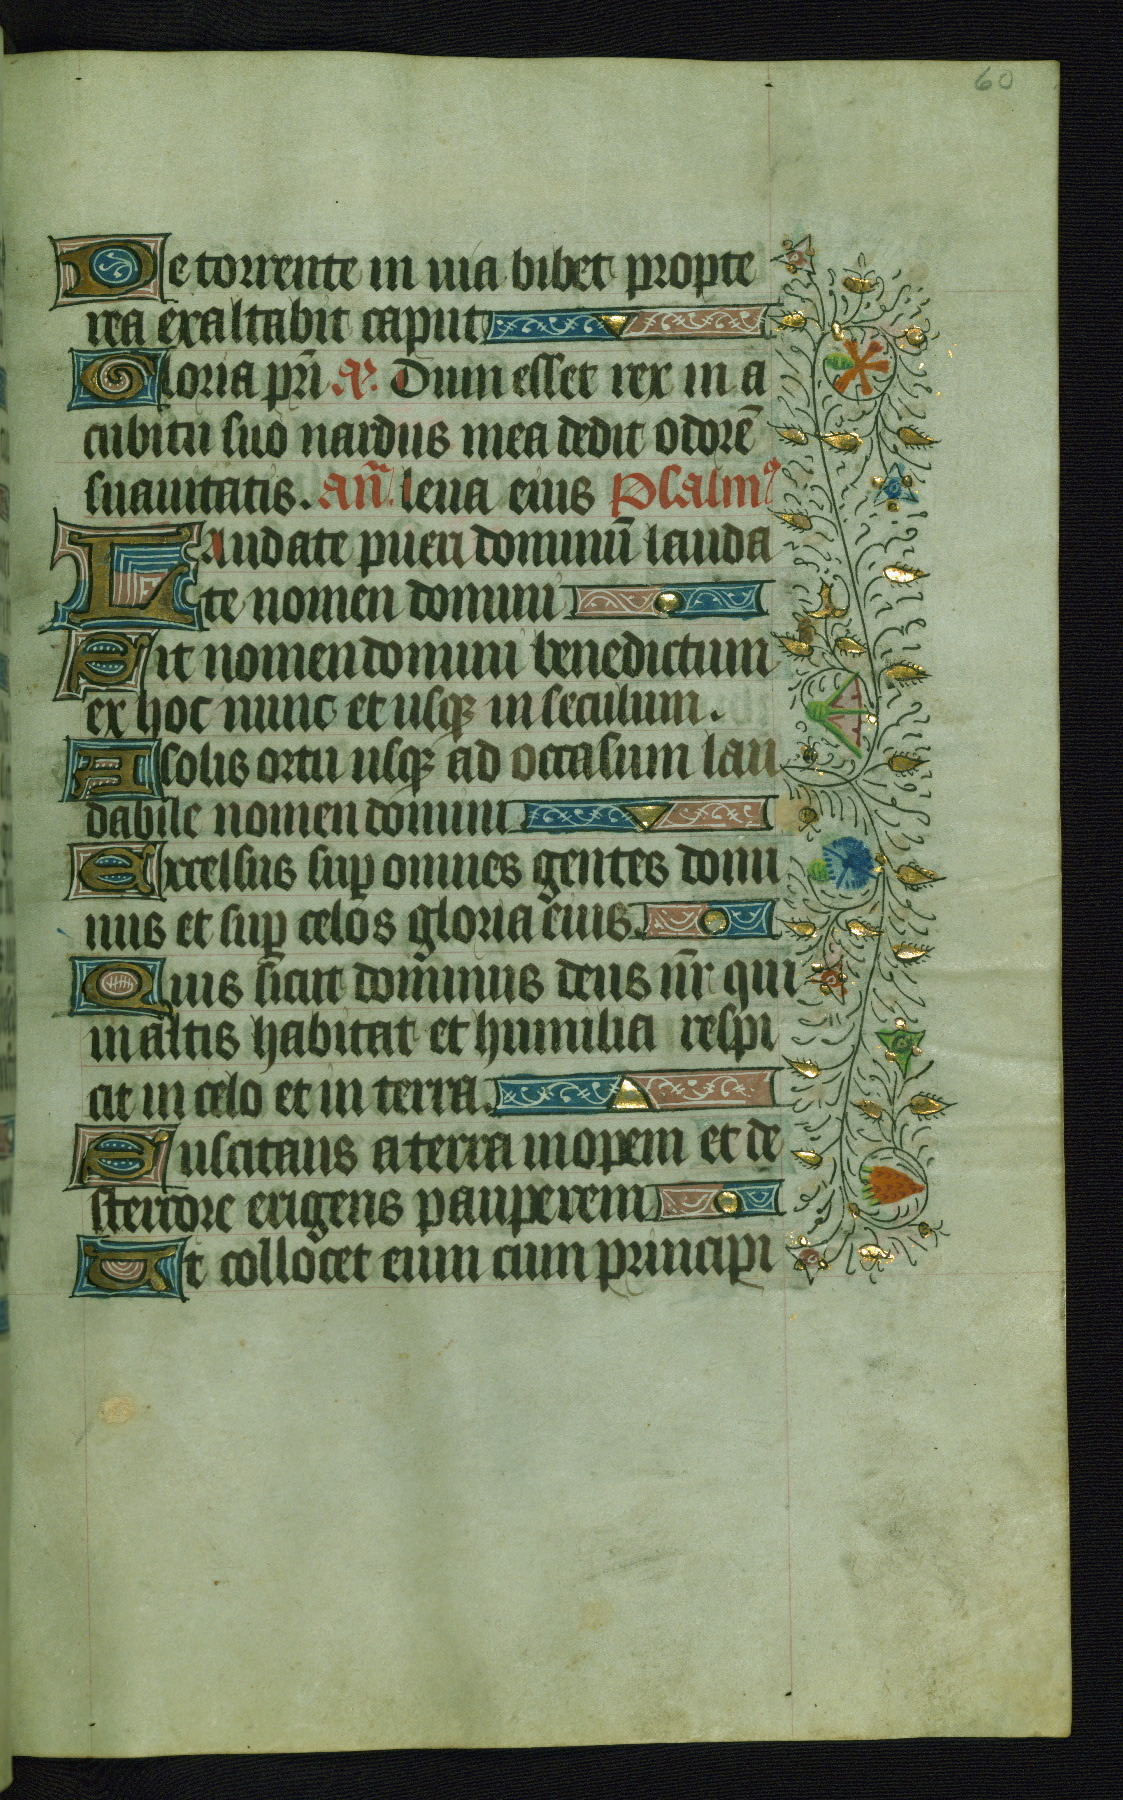 60
De torrente in uia bibet propte
rea exaltabit caput
Gloria pr̄i A. Dum esset rex in a
cubitu suo nardus mea dedit odorē
suauitatis. an̄. leua eius Psalmꝰ
Laudate pueri dominū lauda
te nomen domini
Sit nomen domini benedictum
ex hoc nunc et usqꝫ in seculum.
A solis ortu usqꝫ ad occasum lau
dabile nomen domini
Excelsus suꝑ omnes gentes domi
nus et suꝑ celos gloria eius.
Quis sicut dominus deus nr̄ qui
in altis habitat et humilia respi
cit in celo et in terra.
Suscitans a terra inopem et de
stercore erigens pauperem
Ut collocet eum cum principi